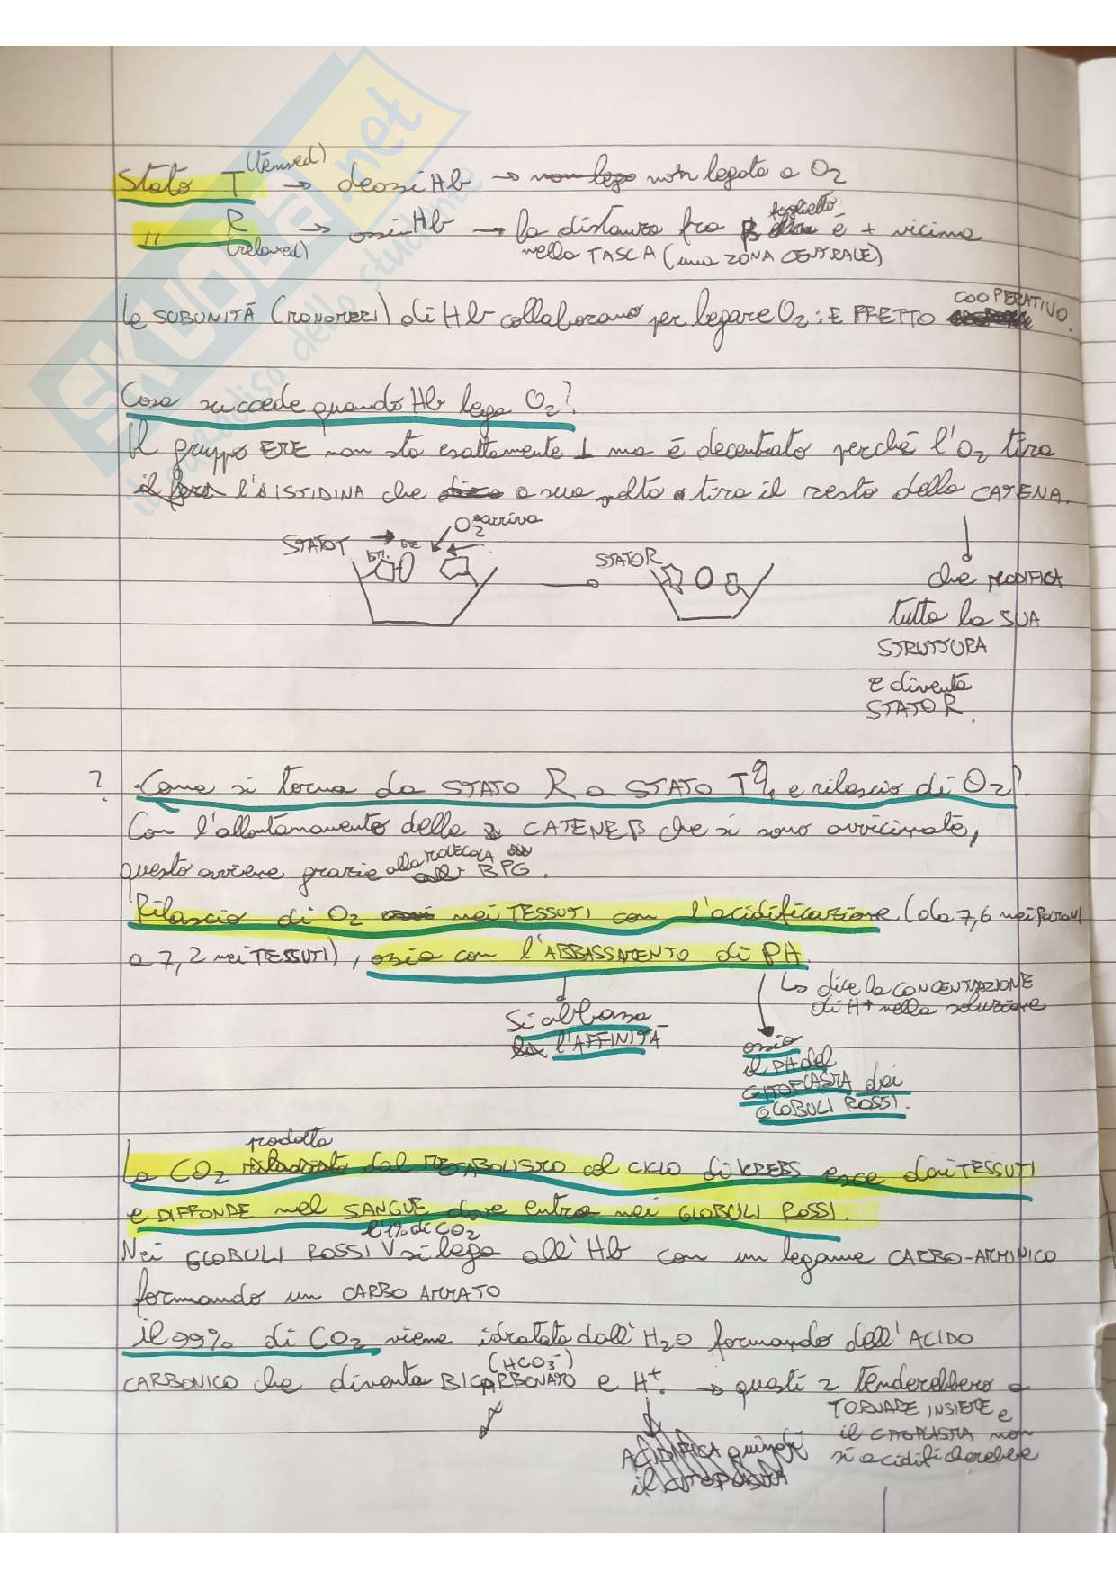 Stato T (tensed) → deossiHb → non legata a O2
" R (relaxed) → ossiHb → la distanza fra β è + vicina
nella TASCA (una ZONA CENTRALE)
Le SUBUNITÀ (MONOMERI) di Hb collaborano per legare O2: EFFETTO COOPERATIVO.
Cosa succede quando Hb lega O2?
Il gruppo EME non sta esattamente ⊥ ma é decentrato perché l'O2 tira
l'ISTIDINA che a sua volta tira il resto della CATENA.
O2 arriva
STATO T
STATO R
che MODIFICA
tutta la SUA
STRUTTURA
e diventa
STATO R.
? Come si torna da STATO R a STATO T e rilascio di O2?
Con l'allontamamento delle 2 CATENE β che si sono avvicinate,
questo avviene grazie alla MOLECOLA BPG.
Rilascio di O2 nei TESSUTI con l'acidificazione (da 7,6 nei polmoni
a 7,2 nei TESSUTI), ossia con l'ABBASSAMENTO di PH.
↳ dice la CONCENTRAZIONE
di H+ nella soluzione
Si abbassa
l'AFFINITÀ
ossia
il PH del
CITOPLASMA dei
GLOBULI ROSSI.
La CO2 prodotta dal METABOLISMO col CICLO di KREBS esce dai TESSUTI
e DIFFONDE nel SANGUE dove entra nei GLOBULI ROSSI.
Nei GLOBULI ROSSI l'1% di CO2 si lega all'Hb con un legame CARBO-AMMINICO
formando un CARBO AMMATO
il 99% di CO2 viene idratata dall'H2O formando dell'ACIDO
CARBONICO che diventa BICARBONATO (HCO3-) e H+. → questi 2 tenderebbero a
TORNARE INSIEME e
il CITOPLASMA non
si acidificherebbe
ACIDIFICA quindi
il CITOPLASMA